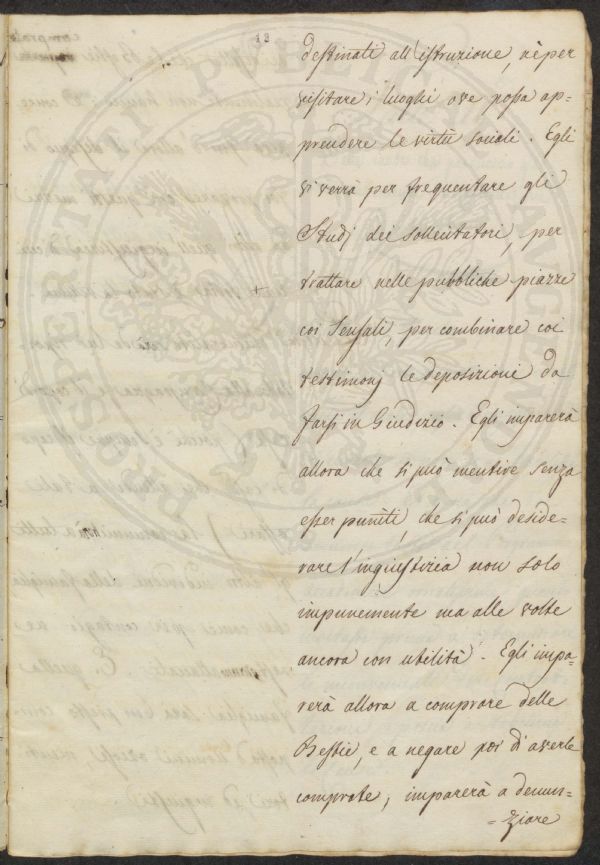 13
destinati all'istruzione, nè per
visitare i luoghi ove possa ap=
prendere le virtù sociali. Egli
vi verrà per frequentare gli
Studj dei sollecitatori, per
trattare nelle pubbliche piazze
coi Sensali, per combinare coi
testimonj le deposizioni da
farsi in Giudizio. Egli imparerà
allora che si può mentire senza
esser puniti, che si può deside=
rare l'ingiustizia non solo
impunemente ma alle volte
ancora con utilità. Egli impa=
rerà allora a comprare delle
Bestie, e a negare poi d'averle
comprate; imparerà a denun=
=ziare